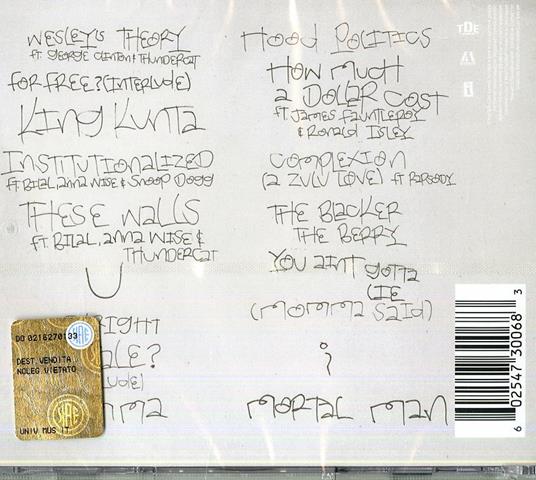 WESLEY'S THEORY
FT. GEORGE CLINTON & THUNDERCAT
FOR FREE? (INTERLUDE)
KING KUNTA
INSTITUTIONALIZED
FT. BILAL, ANNA WISE & SNOOP DOGG
THESE WALLS
FT. BILAL, ANNA WISE &
THUNDERCAT
U
RIGHT
ALE?
LUDE)
MMA
HOOD POLITICS
HOW MUCH
A DOLLAR COST
FT. JAMES FAUNTLEROY
& RONALD ISLEY
COMPLEXION
(A ZULU LOVE) FT RAPSODY
THE BLACKER
THE BERRY
YOU AINT GOTTA
LIE
(MOMMA SAID)
i
MORTAL MAN
TDE
DO 0216270133
SIAE
DEST. VENDITA
NOLEG. VIETATO
SIAE
UNIV MUS IT
6 02547 30068 3